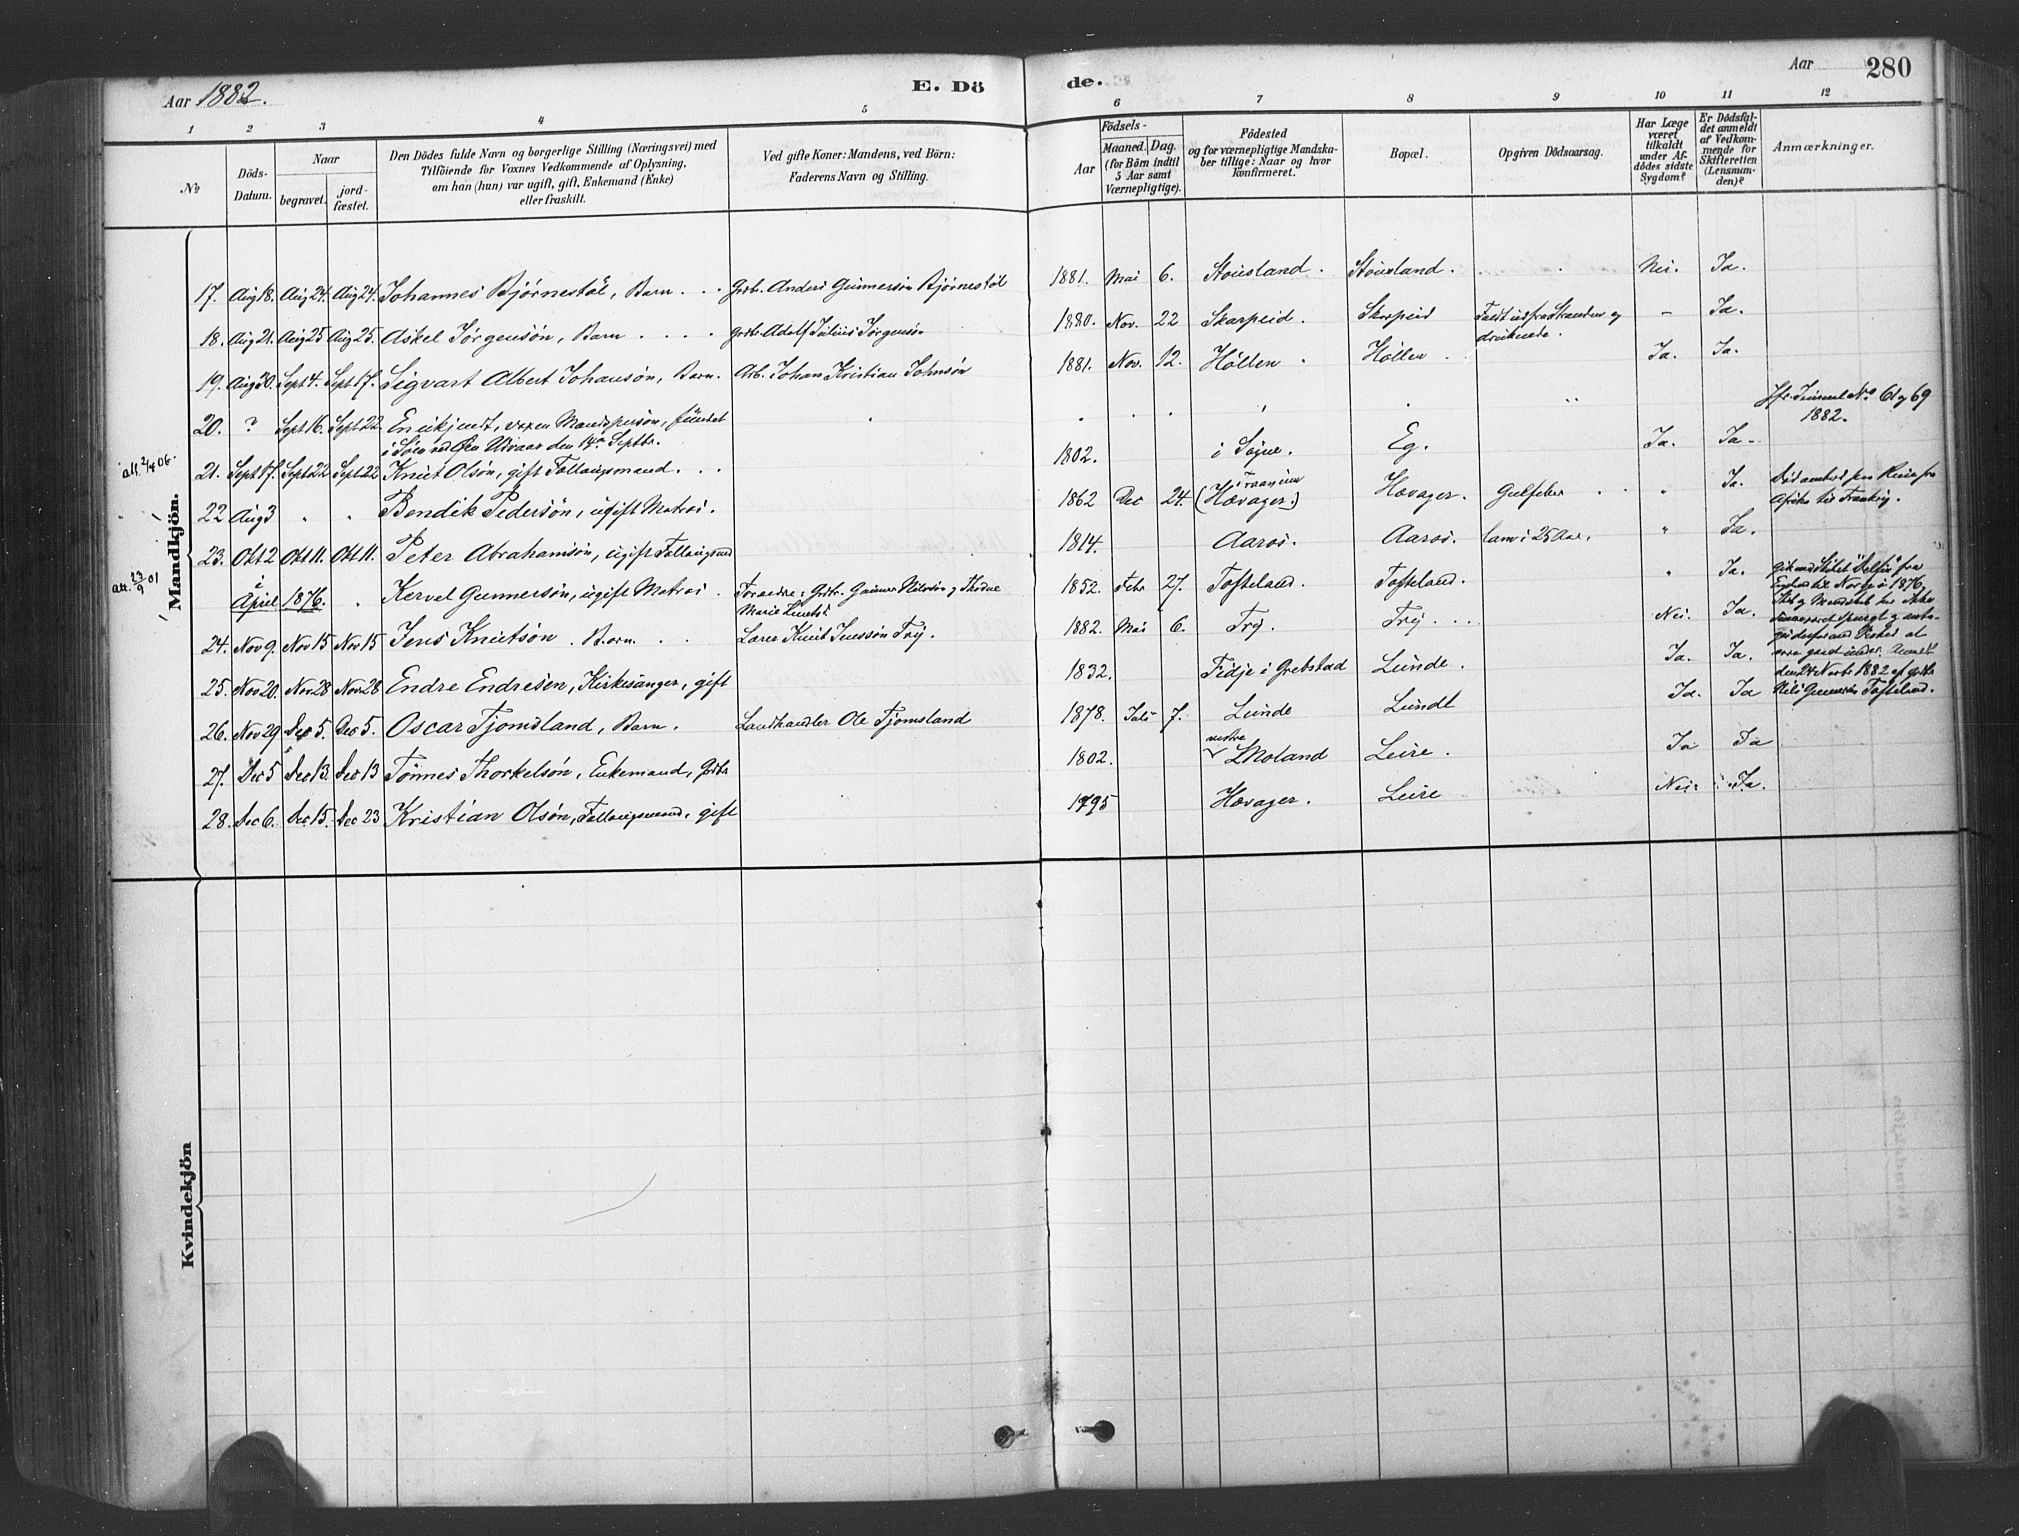 Aar 1882.
E. Dö
de.
Aar
280
1 2 3 4 5 6 7 8 9 10 11 12
№
Döds-
Datum.
Naar
begravet.
jord-
fæstet.
Den Dödes fulde Navn og borgerlige Stilling (Næringsvei) med
Tilföiende for Voxnes Vedkommende af Oplysning,
om han (hun) var ugift, gift, Enkemand (Enke)
eller fraskilt.
Ved gifte Koner: Mandens, ved Börn:
Faderens Navn og Stilling.
Födsels-
Aar
Maaned. Dag.
(for Börn indtil
5 Aar samt
Værnepligtige).
Födested
og for værnepligtige Mandska-
ber tillige: Naar og hvor
konfirmeret.
Bopæl.
Opgiven Dödsaarsag.
Har Læge
været
tilkaldt
under Af-
dödes sidste
Sygdom?
Er Dödsfal-
det anmeldt
af Vedkom-
mende for
Skifteretten
(Lensman-
den)?
Anmærkninger.
Mandkjön.
17. Aug 18. Aug 24. Aug 24. Johannes Bjørnestøl, Barn . . Grdbr. Anders Gunnersøn Bjørnestøl 1881. Mai 6. Stousland. Stousland. Nei. Ja.
18. Aug 21. Aug 25 Aug 25. Askel Jørgensøn, Barn . . . . Grdbr. Adolf Julius Jørgensøn 1880. Nov. 22 Skarpeid. Skarpeid Faldt ud fra Stranden og - Ja.
druknede.
19. Aug 30. Sept 4. Sept 17. Sigvart Albert Johansøn, Barn. Arb. Johan Kristian Johnsøn 1881. Nov. 12. Høllen . Høllen . Ja. Ja.
20. ? Sept 16. Sept 22. En ukjendt, voxen Mandsperson, fundet
i Søen ved Øen Udvaar den 14de Septbr.
Jfr. Journal No 61 og 69
1882.
att. 2/4 06.
21. Sept 17. Sept 22 Sept 22 Knut Olsøn, gift Fattigmand. . . 1802. i Søgne. Eg. Ja. Ja.
22 Aug 3 " " Bendik Pedersøn, ugift Matros. 1862 Dec 24. (Hævager.) Hævager. Gulfeber " Ja. Død ombord paa Reise fra
Afrika til Frankrig.
23. Okt 2 Okt 11. Okt 11. Peter Abrahamsøn, ugift 1814. Aaros. Aaros. Lam i 25 Aar. " Ja.
att. 23/9 01
i
April 1876. " Kervel Gunnersøn, ugift Matros . Forældre: Grdbr. Gunner Nilssøn og Thorne
Marie Knuts. 1852. Febr 27. Tofteland. Tofteland. " Ja. Gik med Skibet fra
England til Norge i 1876,
Skib og Mandskab har ikke
siden været spurgt og anta-
ges derfor med Rette at
være gaaet under. Anmeldt
den 24 Novbr 1882 af Grdbr
Nils Gunnersøn Tofteland.
24. Nov 9. Nov 15 Nov 15 Jens Knutsøn . Barn . . Lærer Knut Jenssøn Try. 1882. Mai 6. Try. Try. . . Nei. Ja.
25. Nov 20. Nov 28 Nov 28 Endre Endresen, Kirkesanger, gift 1832. Fidje i Grebstad Lunde. Ja. Ja.
26. Nov 29 Dec 5. Dec 5. Oscar Tjomsland, Barn. Landhandler Ole Tjomsland 1878. Juli 7. Lunde Lunde Ja. Ja
27. Dec 5 Dec 13. Dec 13 Tønnes Thorkelsøn, Enkemand, Grdbr 1802. Leire. Ja Ja
28. Dec 6. Dec 15. Dec 23 Kristian Olsøn, gift 1795 Hævager. Leire Nei. Ja.
Kvindekjön